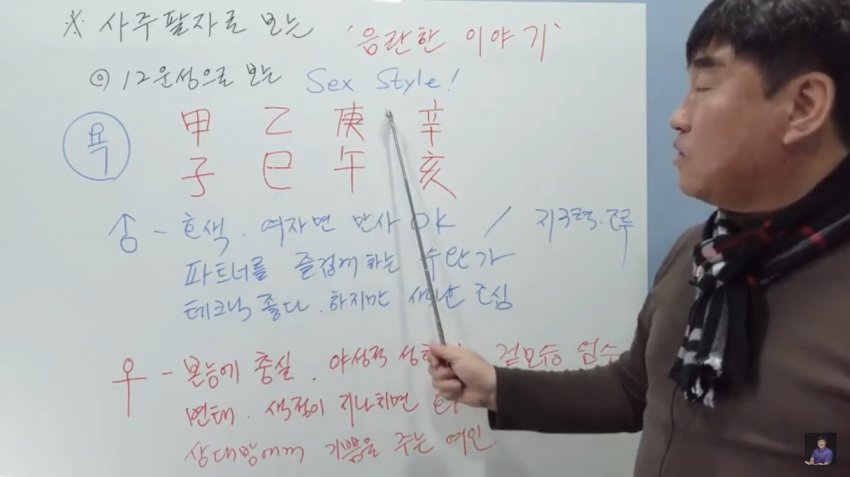 ※ 사주팔자로 보는 '음란한 이야기'
◎ 12운성으로 보는 Sex Style!
욕
甲 乙 庚 辛
子 巳 午 亥
♂ - 호색. 여자면 만사 OK / 지구력.조루
파트너를 즐겁게 하는 수단가
테크닉 좋다. 하지만 색난 조심
우 - 본능에 충실. 야성적 겉모습
변태. 색정이 지나치면
상대방에게 기쁨을 주는 여인